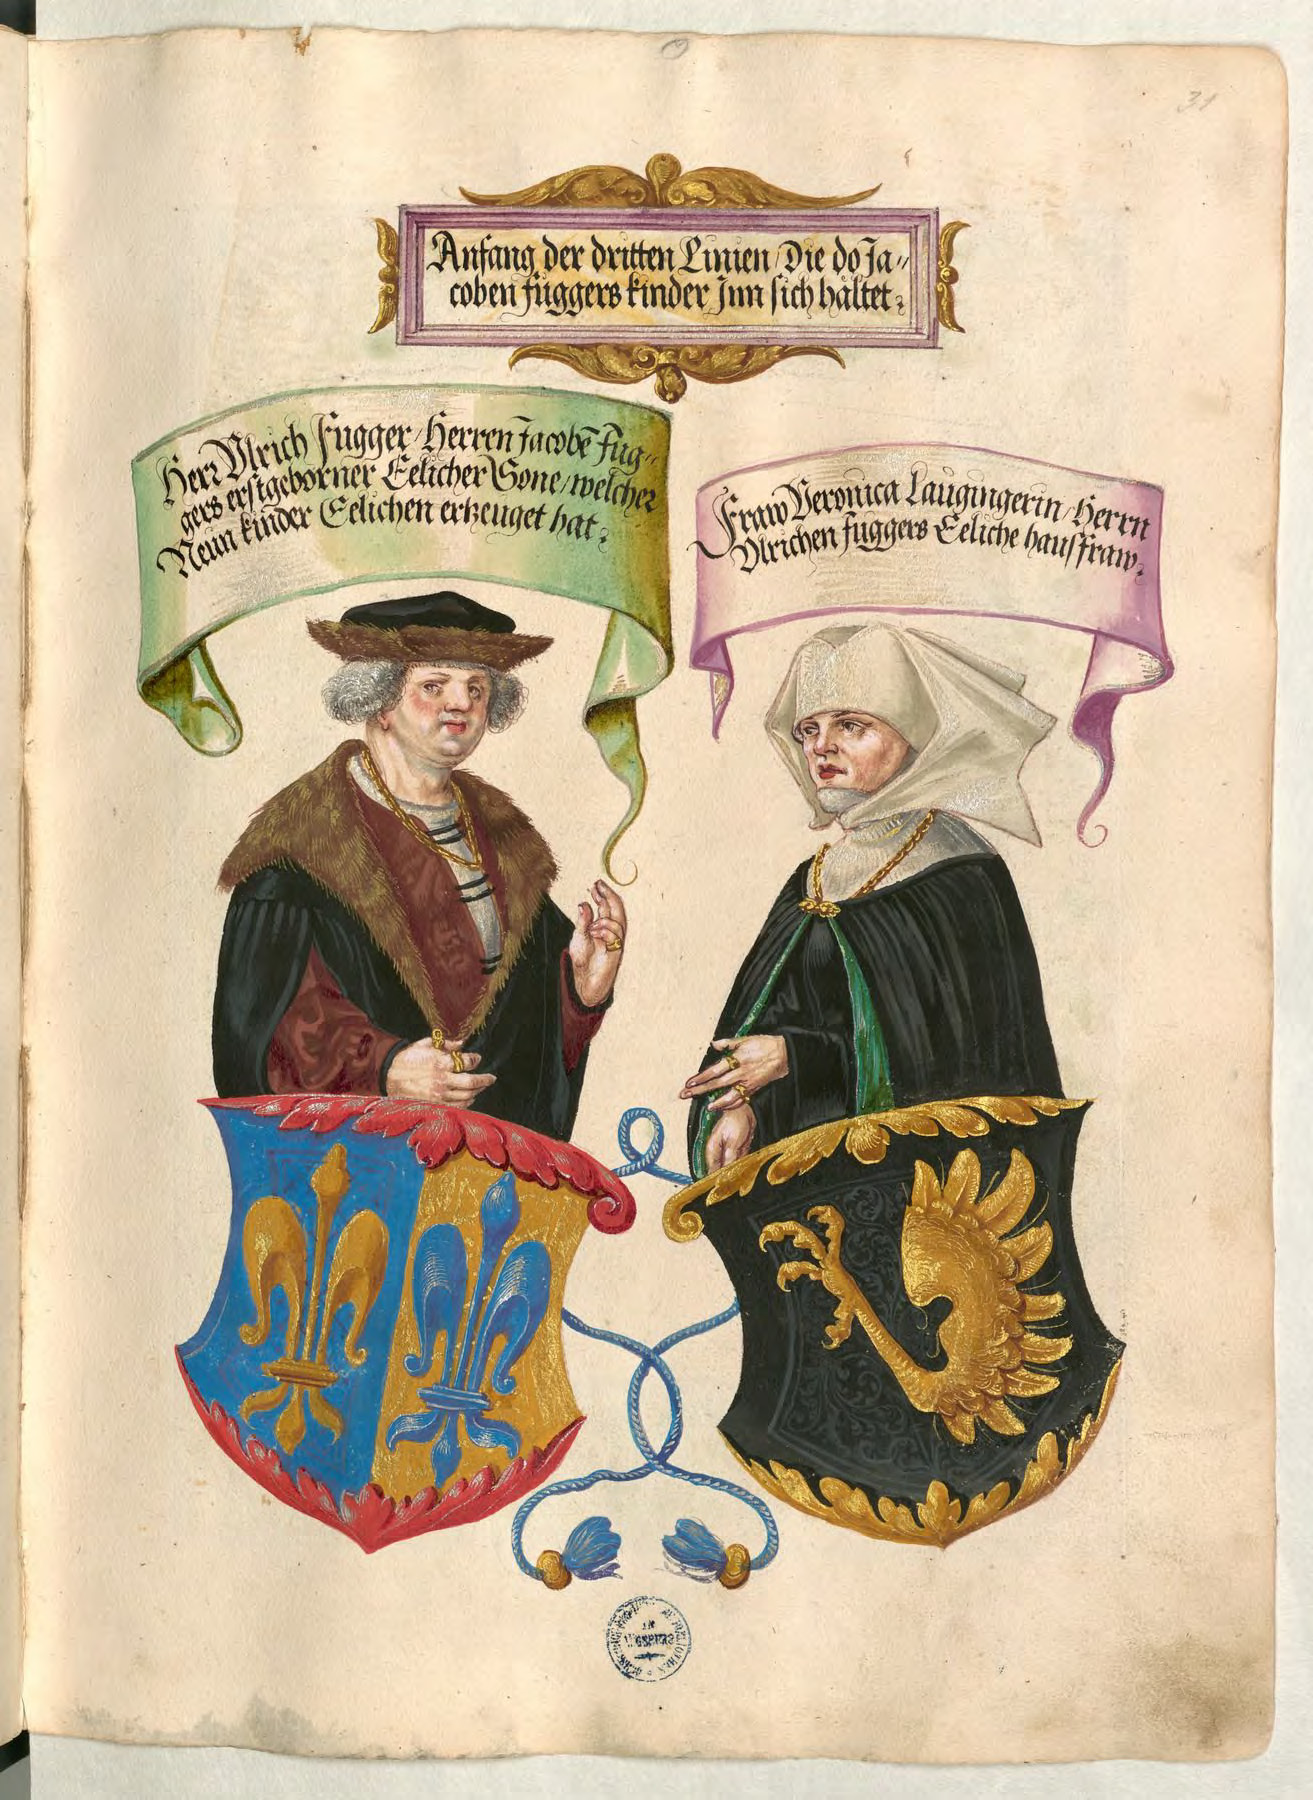 31
Anfang der dritten Linien / Die do Ja„
coben fuggers kinder Jnn sich håltet.
Herr Vlrich Fugger / Herren Jacobē Fug„
gers erstgeborner Eelicher Sone / welcher
Neun kinder Eelichen erzeuget hat.
Fraw Veronica Laugingerin / Herrn
Vlrichen fuggers Eeliche hausfraw.